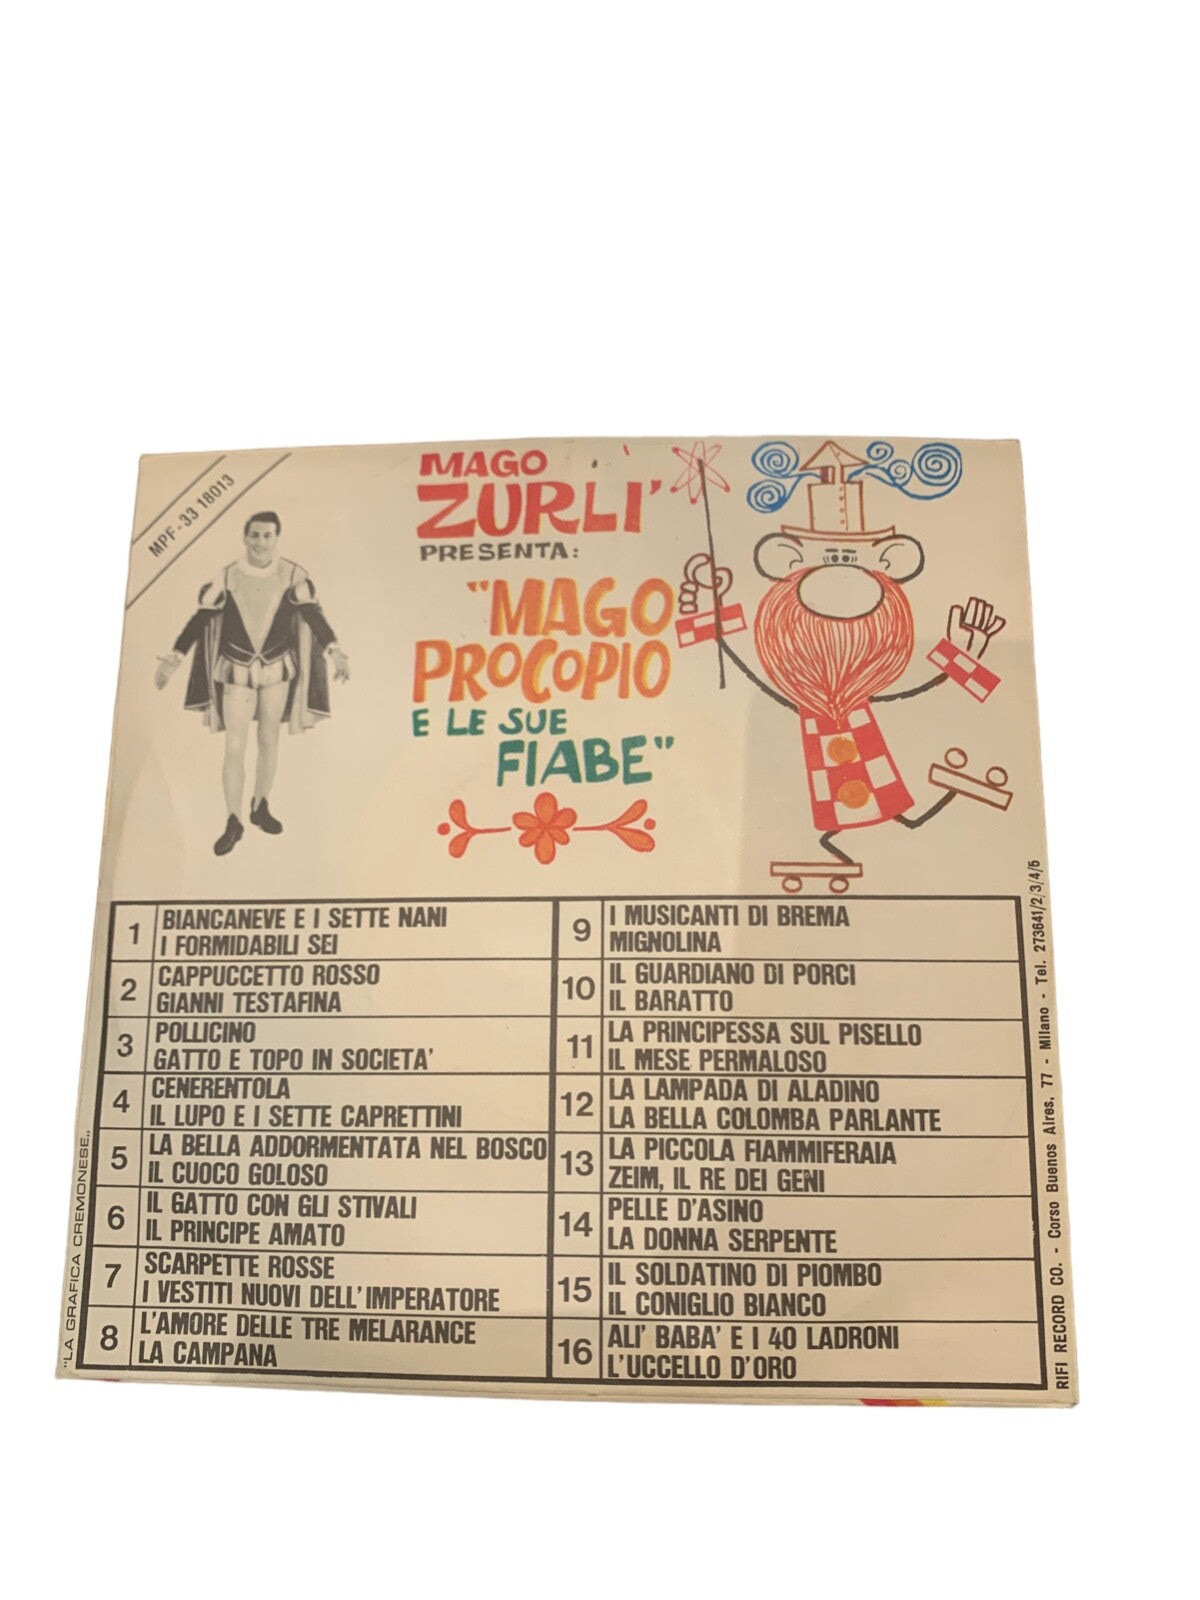 MPF - 33 18013
MAGO
ZURLI'
PRESENTA:
"MAGO
PROCOPIO
E LE SUE
FIABE"
1
BIANCANEVE E I SETTE NANI
I FORMIDABILI SEI
2
CAPPUCCETTO ROSSO
GIANNI TESTAFINA
3
POLLICINO
GATTO E TOPO IN SOCIETA'
4
CENERENTOLA
IL LUPO E I SETTE CAPRETTINI
5
LA BELLA ADDORMENTATA NEL BOSCO
IL CUOCO GOLOSO
6
IL GATTO CON GLI STIVALI
IL PRINCIPE AMATO
7
SCARPETTE ROSSE
I VESTITI NUOVI DELL'IMPERATORE
8
L'AMORE DELLE TRE MELARANCE
LA CAMPANA
9
I MUSICANTI DI BREMA
MIGNOLINA
10
IL GUARDIANO DI PORCI
IL BARATTO
11
LA PRINCIPESSA SUL PISELLO
IL MESE PERMALOSO
12
LA LAMPADA DI ALADINO
LA BELLA COLOMBA PARLANTE
13
LA PICCOLA FIAMMIFERAIA
ZEIM, IL RE DEI GENI
14
PELLE D'ASINO
LA DONNA SERPENTE
15
IL SOLDATINO DI PIOMBO
IL CONIGLIO BIANCO
16
ALI' BABA' E I 40 LADRONI
L'UCCELLO D'ORO
"LA GRAFICA CREMONESE"
RIFI RECORD CO. - Corso Buenos Aires, 77 - Milano - Tel. 273641/2/3/4/5